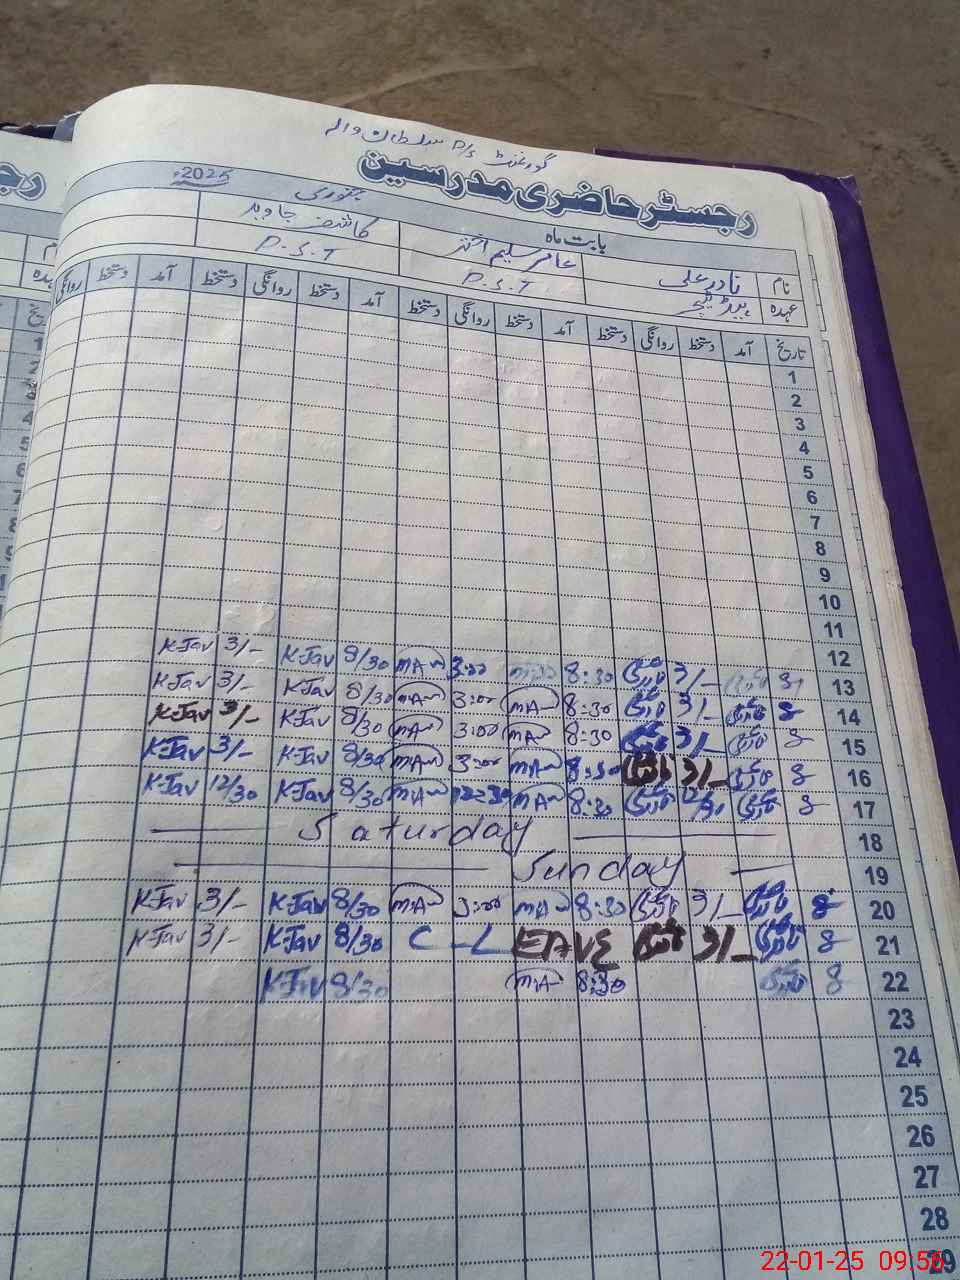 گورنمنٹ P/S سلطان والہ
رجسٹر حاضری مدرسین
بابت ماہ جنوری 2025ء
نام نادر علی عامر سلیم اختر کاشف جاوید
عہدہ ہیڈ ٹیچر P.S.T P.S.T
تاریخ آمد دستخط روانگی دستخط آمد دستخط روانگی دستخط آمد دستخط روانگی دستخط آمد دستخط روانگی
1
2
3
4
5
6
7
8
9
10
11
12
13 8 نادر علی 3/- نادر علی 8:30 M.A 3:00 M.A 8/30 K.Jav 3/- K.Jav
14 8 نادر علی 3/- نادر علی 8:30 M.A 3:00 M.A 8/30 K.Jav 3/- K.Jav
15 8 نادر علی 3/- نادر علی 8:30 M.A 3:00 M.A 8/30 K.Jav 3/- K.Jav
16 8 نادر علی 3/- نادر علی 8:30 M.A 3:00 M.A 8/30 K.Jav 3/- K.Jav
17 8 نادر علی 12/30 نادر علی 8:30 M.A 12:30 M.A 8/30 K.Jav 12/30 K.Jav
18 Saturday
19 Sunday
20 8 نادر علی 3/- نادر علی 8:30 M.A 3:00 M.A 8/30 K.Jav 3/- K.Jav
21 8 نادر علی 3/- نادر علی C-L EAVE 8/30 K.Jav 3/- K.Jav
22 8 نادر علی 8:30 M.A 8/30 K.Jav
23
24
25
26
27
28
29
22-01-25 09:56